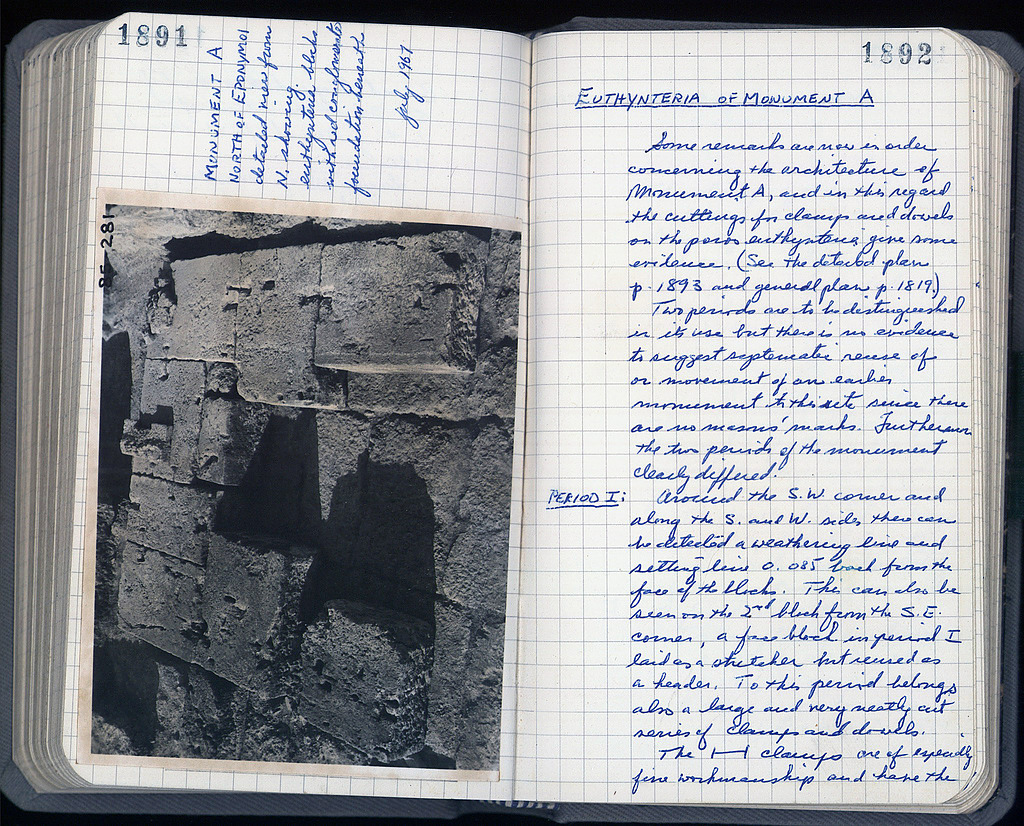 1891
MONUMENT A
NORTH OF EPONYMOI
detailed view from
N. showing
euthynteria blocks
with red conglomerate
foundation beneath
July 1967
85-281
1892
EUTHYNTERIA OF MONUMENT A
Some remarks are now in order
concerning the architecture of
Monument A, and in this regard
the cuttings for clamps and dowels
on the poros euthynteria give some
evidence. (See the detailed plan
p. 1893 and general plan p. 1819.)
Two periods are to be distinguished
in its use but there is no evidence
to suggest systematic reuse of
or movement of an earlier
monument to this site since there
are no masons' marks. Furthermore
the two periods of the monument
clearly differed.
PERIOD I: Around the S.W. corner and
along the S. and W. sides there can
be detected a weathering line and
setting line 0.085 back from the
face of the blocks. This can also be
seen on the 2nd block from the S.E.
corner, a face block in period I
laid as a stretcher but reused as
a header. To this period belongs
also a large and very neatly cut
series of clamps and dowels.
The H clamps are of especially
fine workmanship and have the